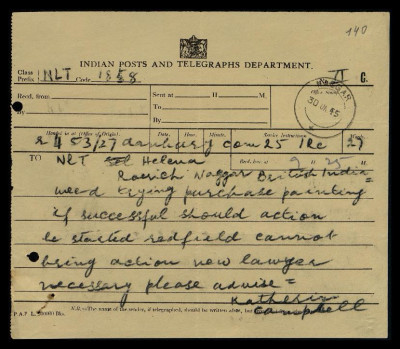 140
INDIAN POSTS AND TELEGRAPHS DEPARTMENT.
Class Prefix NLT Code 1858 C.
Recd. from By
Sent at H. M.
To
By
NAGGAR 30 JUL 45
Handed in at (Office of Origin). Date. Hour. Minute. Service Instructions. Words.
R 453/27 danbury com 25 Ire 27
TO NLT Helena Recd. here at 9 H. 25 M.
Roerich Naggar British India =
weed trying purchase painting
if successful should action
be started redfield cannot
bring action new lawyer
necessary please advise =
Katherin campbell
N.B.—The name of the sender, if telegraphed, should be written after, but